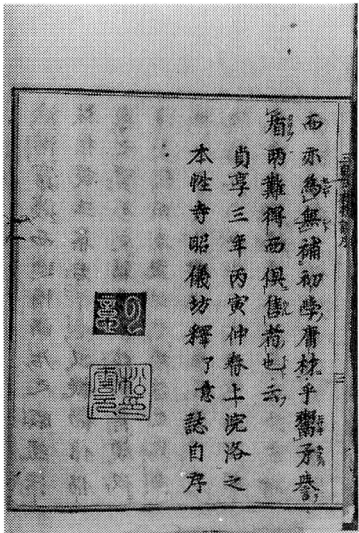 而亦為無補初學庸材乎鬻矛譽
盾兩難得而俱售者也云
貞享三年丙寅仲春上浣洛之
本性寺昭儀坊釋了意誌自序